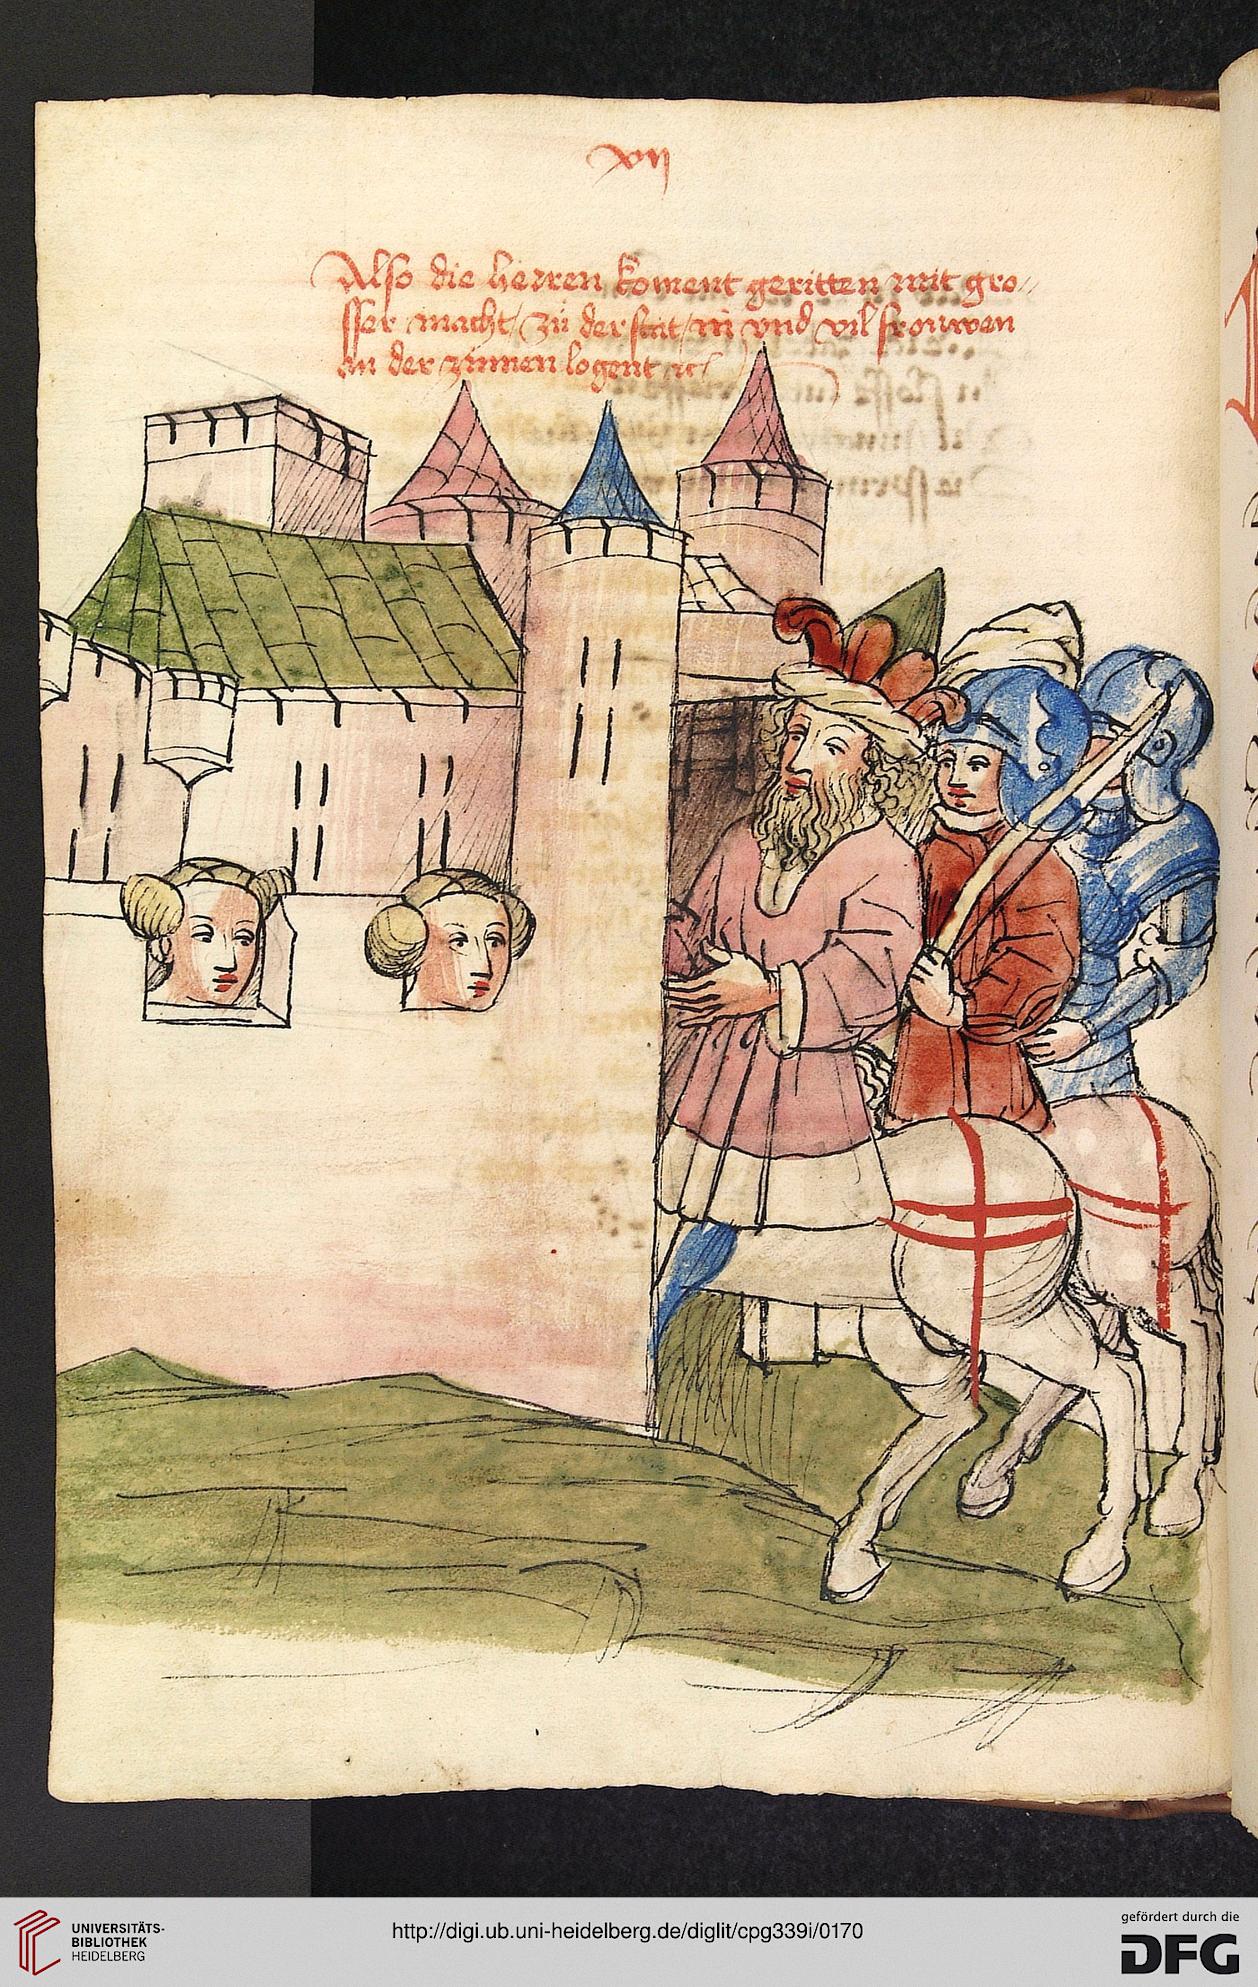 xvij
Also die herren koment geritten mit gro//
sser macht / zü der stat / in vnd vil frouwen
an der zinnen logent
UNIVERSITÄTS-
BIBLIOTHEK
HEIDELBERG
http://digi.ub.uni-heidelberg.de/diglit/cpg339i/0170
gefördert durch die
DFG